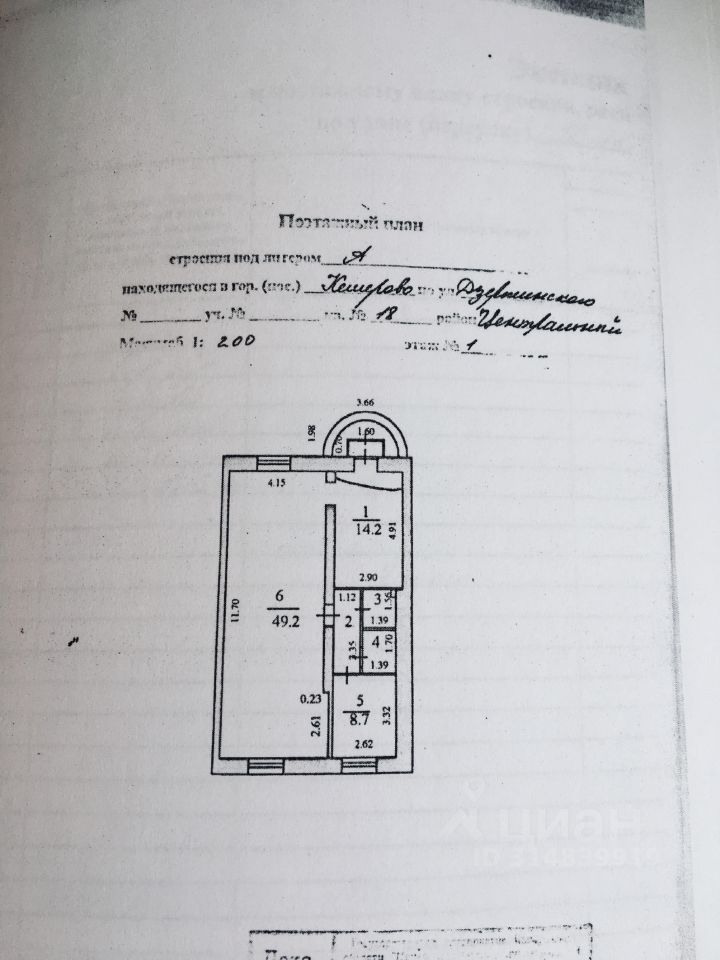 Поэтажный план
строения под литером А
находящегося в гор. (пос.) Кемерово по ул. Дзержинского
№ уч. № кв. № 18 район Центральный
Масштаб 1: 200 этаж № 1
3.66
1.98
0.70
1.60
4.15
1
14.2
4.91
2.90
11.70
6
49.2
1.12
2
3.35
3
1.56
1.39
4
1.70
1.39
0.23
2.61
5
8.7
3.32
2.62
циан